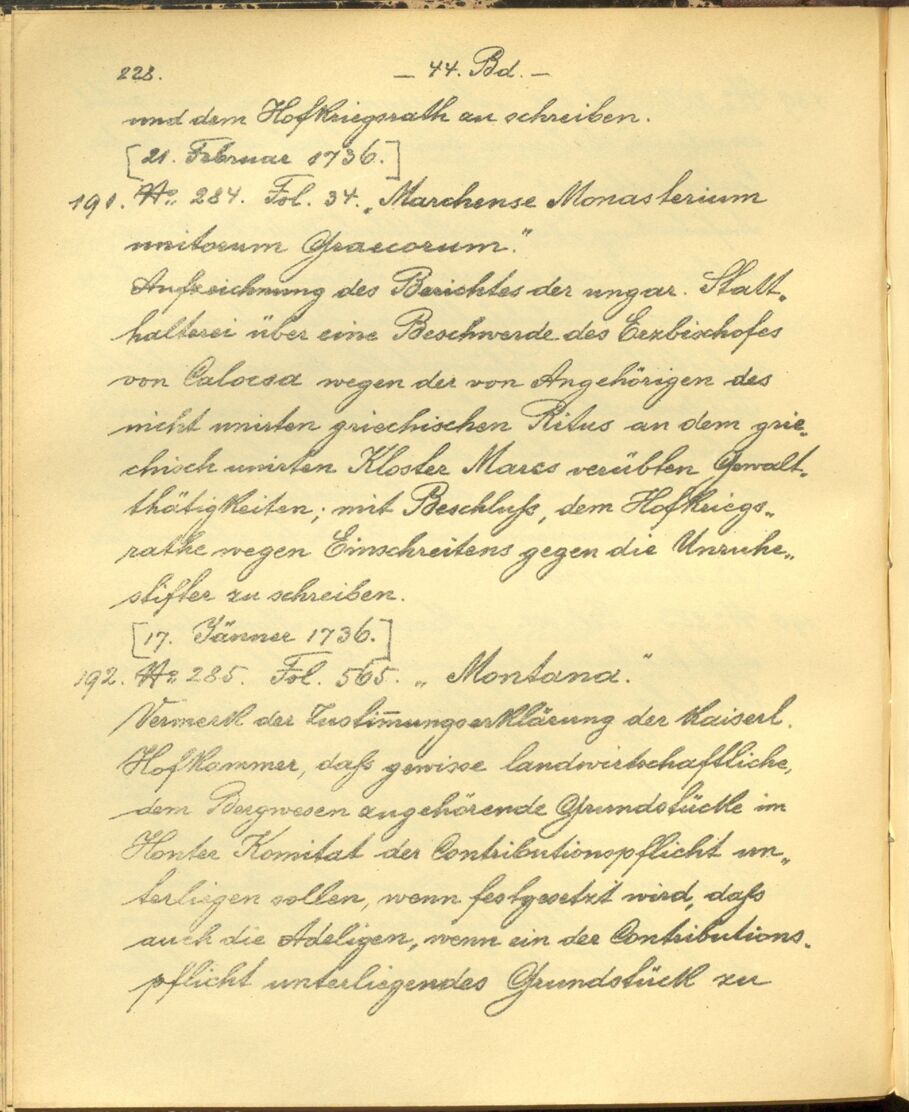 228.
— 44. Bd. —
und dem Hofkriegsrath zu schreiben.
[21. Februar 1736.]
191. No. 284. Fol. 34. „Marchense Monasterium
unitorum Graecorum."
Aufzeichnung des Berichtes der ungar. Statt„
halterei über eine Beschwerde des Erzbischofes
von Calocsa wegen der von Angehörigen des
nicht unirten griechischen Ritus an dem grie„
chisch unirten Kloster Marcs verübten Gewalt„
thätigkeiten; mit Beschluß, dem Hofkriegs„
rathe wegen Einschreitens gegen die Unruhe„
stifter zu schreiben.
[17. Jänner 1736.]
192. No. 285. Fol. 565. „Montana."
Vermerk der Zustim̅ungserklärung der kaiserl.
Hofkammer, daß gewisse landwirtschaftliche,
dem Bergwesen zugehörende Grundstücke im
Honter Komitat der Contributionspflicht un„
terliegen sollen, wenn festgesetzt wird, daß
auch die Adeligen, wenn ein der Contributions„
pflicht unterliegendes Grundstück zu